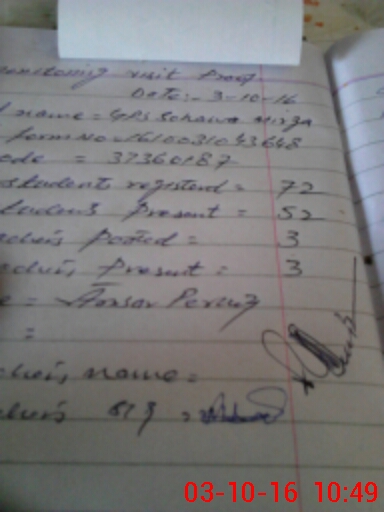 onitoring visit Proof
Date:- 3-10-16
name = GPS Sohawa Mirza
form No = 1610031043648
ode = 37360187
students registerd = 72
tudens Present = 52
achers Posted = 3
achers Present = 3
= Ansar Perviz
=
chers name =
chers sig =
03-10-16 10:49